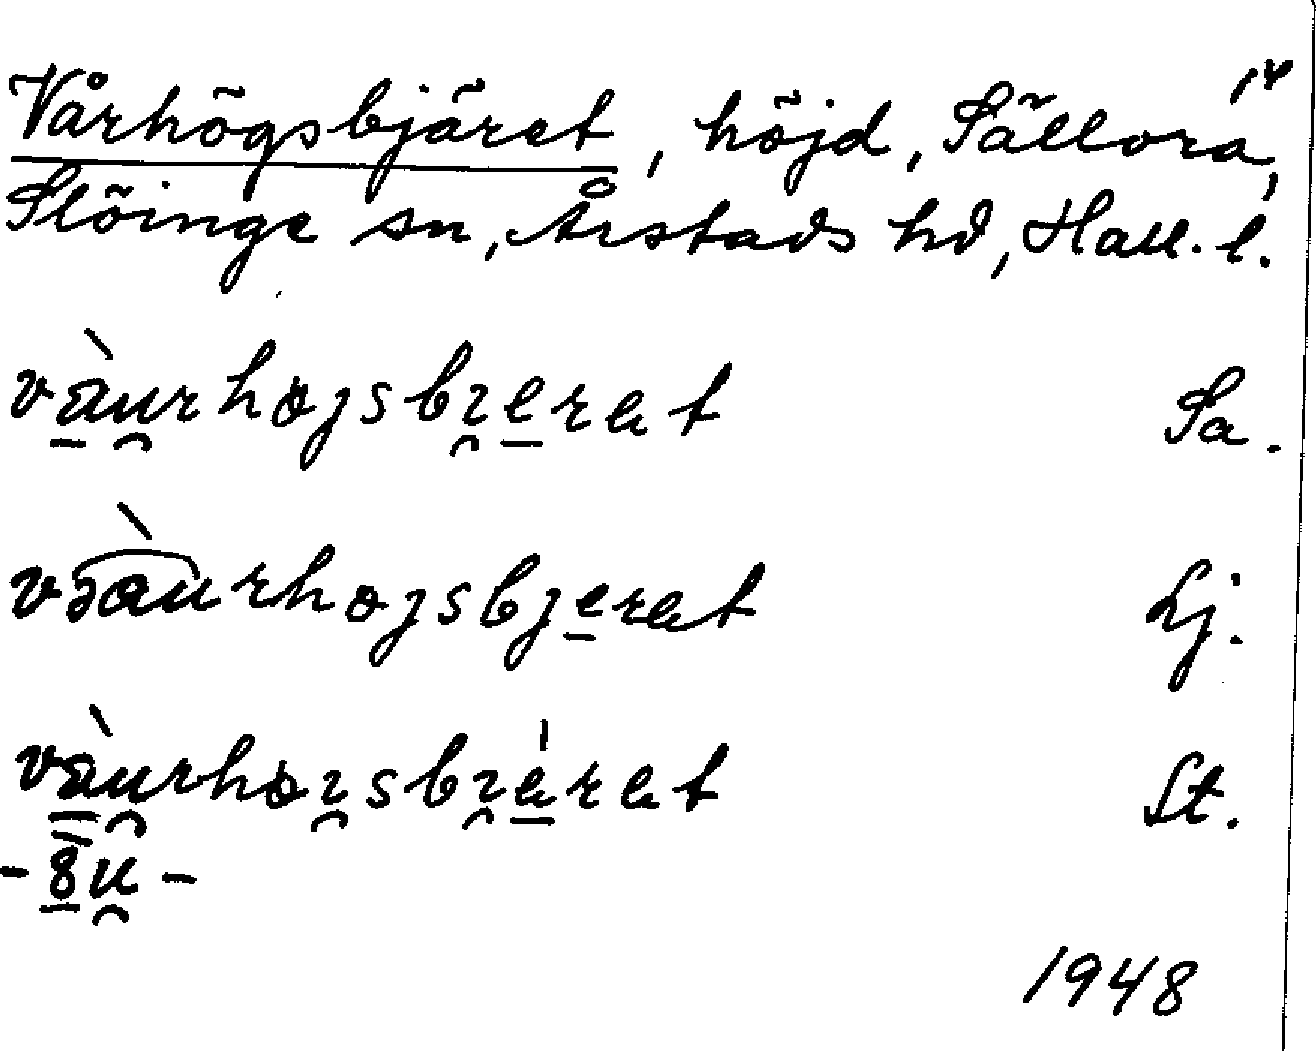 Vårhögsbjäret, höjd, Sällora, 14
Slöinge sn, Årstads hd, Hall. l.
vàu̯rhøjsbi̯eret Sa.
vɔàurhøjsbjeret Lj.
vàu̯rhøi̯sbi̯éret St.
-8u̯-
1948